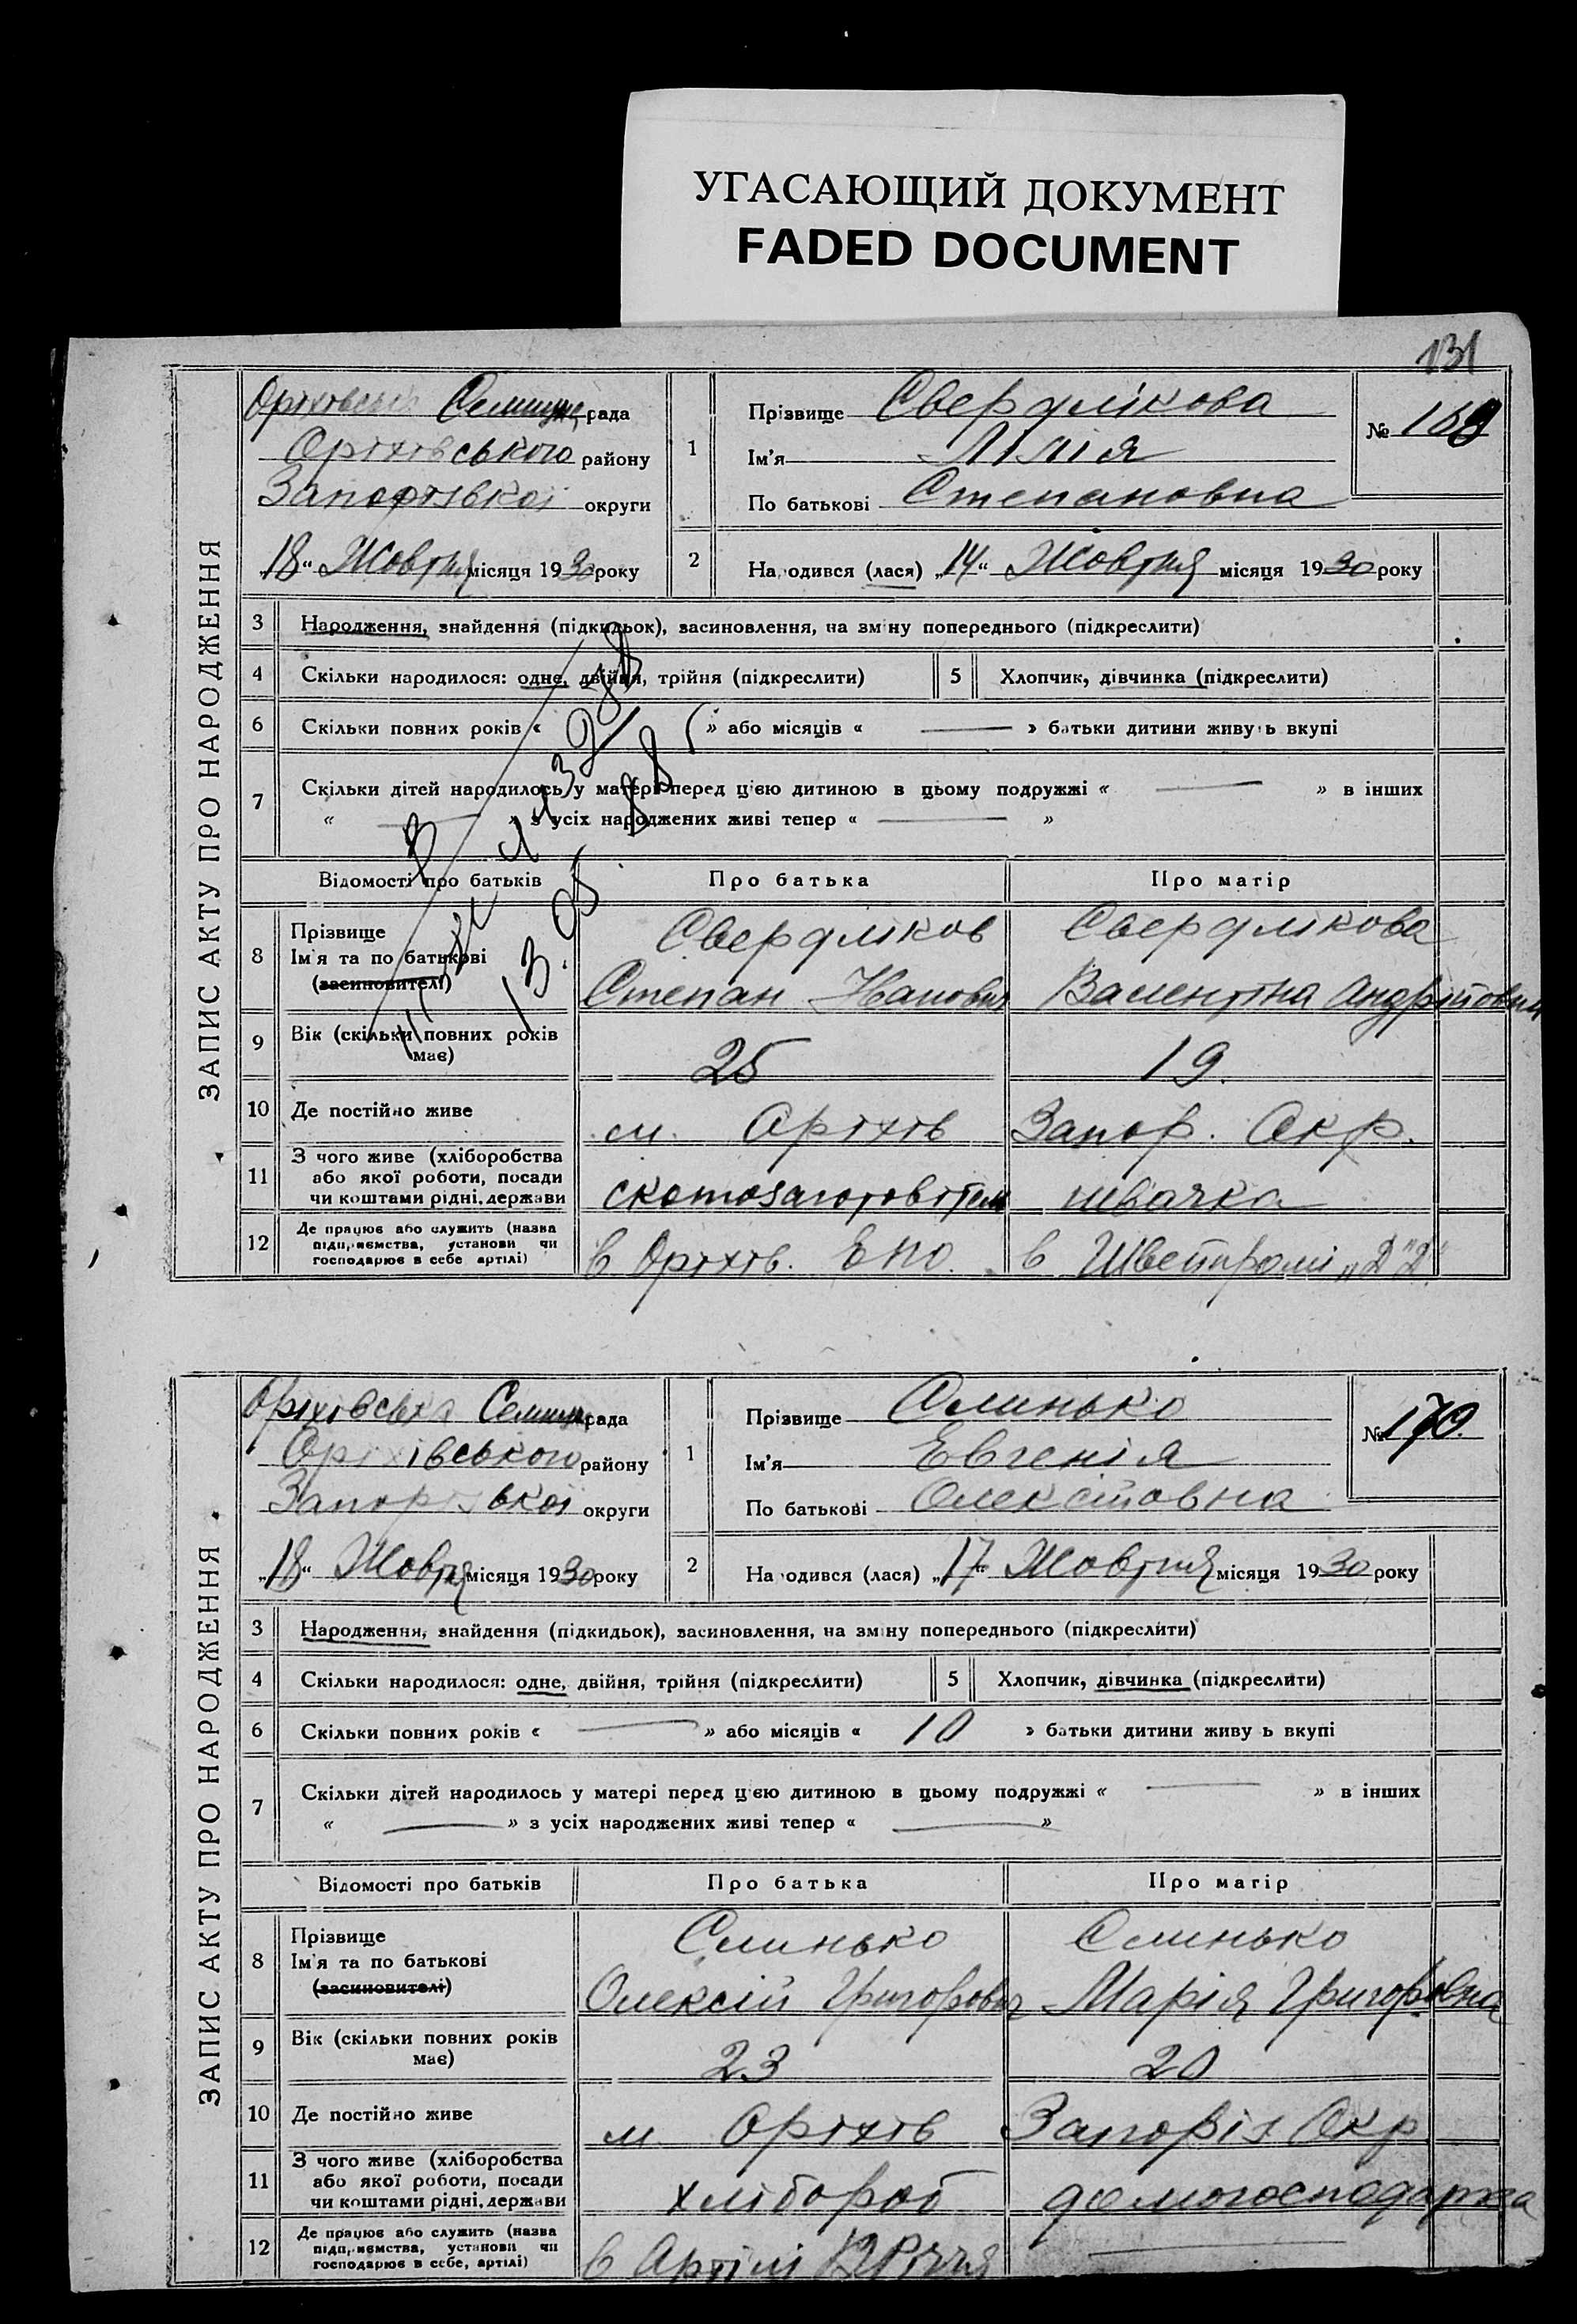 УГАСАЮЩИЙ ДОКУМЕНТ
FADED DOCUMENT
131
ЗАПИС АКТУ ПРО НАРОДЖЕННЯ
Оріховська Селищна рада
Оріхівського району
Запорізької округи
„18“ Жовтня місяця 1930 року
1
Прізвище Свердлікова
Ім'я Лілія
По батькові Степановна
№ 169
2
Народився (лася) „14“ Жовтня місяця 1930 року
3 Народження, знайдення (підкидьок), засиновлення, на зміну попереднього (підкреслити)
4 Скільки народилося: одне, двійня, трійня (підкреслити)
5 Хлопчик, дівчинка (підкреслити)
6 Скільки повних років « 1 » або місяців « — » батьки дитини живуть вкупі
7 Скільки дітей народилось у матері перед цією дитиною в цьому подружжі « — » в інших
« — » з усіх народжених живі тепер « — »
Відомості про батьків
Про батька
Про матір
8 Прізвище
Ім'я та по батькові
(засиновителі)
Свердліков
Степан Іванович
Свердлікова
Валентіна Андрійовна
9 Вік (скільки повних років має)
25
19.
10 Де постійно живе
м. Оріхів Запор. Окр.
11 З чого живе (хліборобства
або якої роботи, посади
чи коштами рідні, держави
скотозаготовітель
швачка
12 Де працює або служить (назва
підприємства, установи чи
господарює в себе артілі)
в Оріхів. ЕПО.
в Швейпромі „Д"Д"
ЗАПИС АКТУ ПРО НАРОДЖЕННЯ
Оріховська Селищна рада
Оріхівського району
Запорізької округи
„18“ Жовтня місяця 1930 року
1
Прізвище Слинько
Ім'я Евгенія
По батькові Олексійовна
№ 170.
2
Народився (лася) „17“ Жовтня місяця 1930 року
3 Народження, знайдення (підкидьок), засиновлення, на зміну попереднього (підкреслити)
4 Скільки народилося: одне, двійня, трійня (підкреслити)
5 Хлопчик, дівчинка (підкреслити)
6 Скільки повних років « — » або місяців « 10 » батьки дитини живуть вкупі
7 Скільки дітей народилось у матері перед цією дитиною в цьому подружжі « — » в інших
« — » з усіх народжених живі тепер « — »
Відомості про батьків
Про батька
Про матір
8 Прізвище
Ім'я та по батькові
(засиновителі)
Слинько
Олексій Григорович
Слинько
Марія Григоровна
9 Вік (скільки повних років має)
23
20
10 Де постійно живе
м. Оріхів Запоріз Окр
11 З чого живе (хліборобства
або якої роботи, посади
чи коштами рідні, держави
хлібороб
домогосподарка
12 Де працює або служить (назва
підприємства, установи чи
господарює в себе, артілі)
в Артілі 12 Річчя